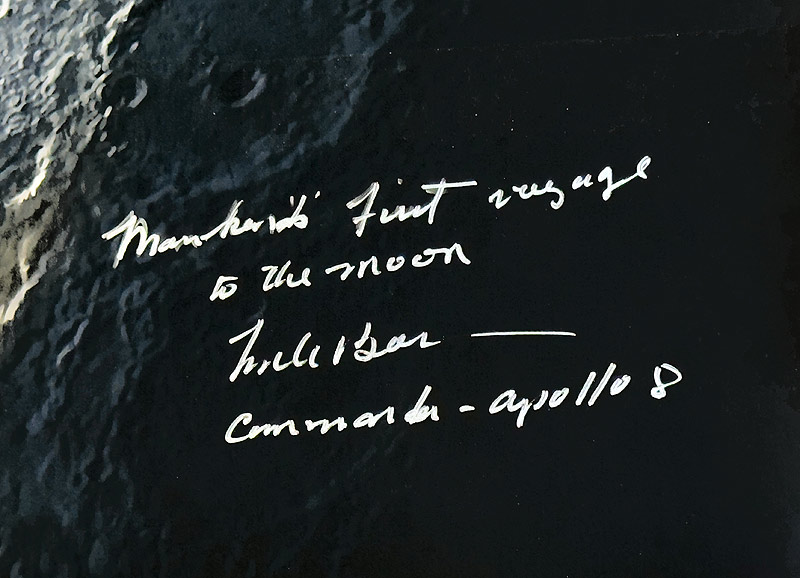 Mankinds' First voyage
to the moon
Commander - Apollo 8